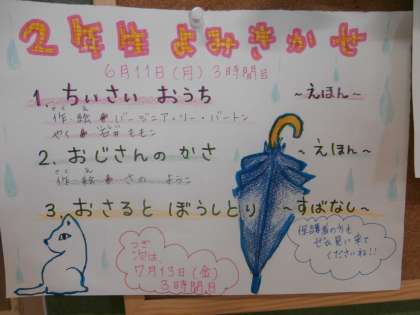 2年生 よみきかせ
6月11日(月) 3時間目
1. ちいさい おうち ~えほん~
作・絵 バージニア・リー・バートン
やく 石井 ももこ
2. おじさんの かさ ~えほん~
作・絵 さの ようこ
3. おさると ぼうしとり ~すばなし~
つぎ
次は
7月13日(金)
3時間目
保護者の方も
ぜひ見に来て
くださいね!!